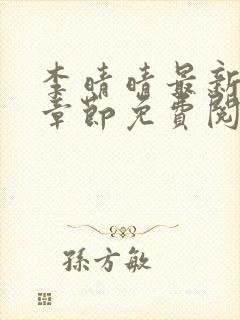 李晴晴最新
章節免費閱
孫方敏